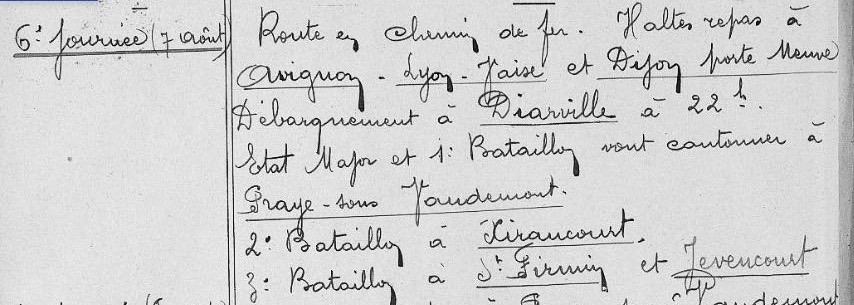 6e Journée (7 août)
Route en chemin de fer. Haltes repas à
Avignon - Lyon - Vaise et Dijon porte Neuve
Débarquement à Diarville à 22 h.
Etat Major et 1: Bataillon vont cantonner à
Praye - sous Vaudemont.
2e Bataillon à Xirancourt.
3e Bataillon à St Firmin et Jevencourt